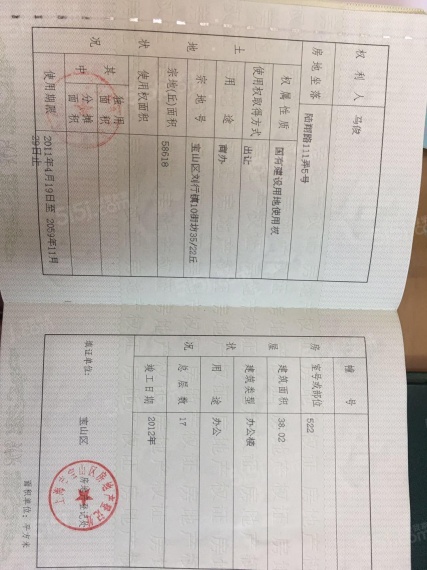 权利人 马俊
房地坐落 陆翔路111弄5号
土地状况
权属性质 国有建设用地使用权
使用权取得方式 出让
用途 商办
宗地号 宝山区刘行镇10街坊35/22丘
宗地(丘)面积 58618
使用权面积
其中
独用面积
分摊面积
使用期限 2011年4月19日至 2059年11月
29日止
房屋状况
幢号
室号或部位 522
建筑面积 38.02
建筑类型 办公楼
用途 办公
总层数 17
竣工日期 2012年
填证单位: 宝山区
面积单位: 平方米